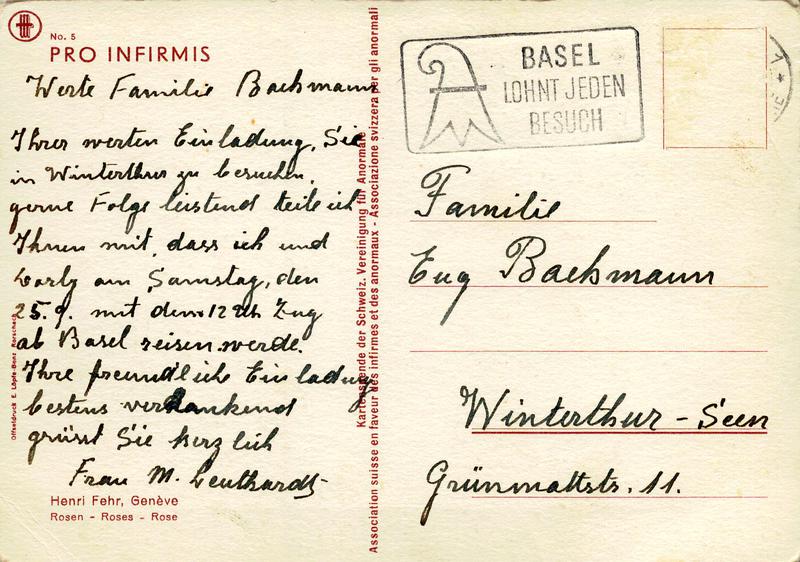 No. 5
PRO INFIRMIS
Werte Familie Bachmann
Ihrer werten Einladung, Sie
in Winterthur zu besuchen,
gerne Folge leistend teile ich
Ihnen mit, dass ich und
am Samstag, den
25.9. mit dem 12 Uh Zug
ab Basel reisen werde.
Ihre freundlich Einladung
bestens verdankend
grüsst Sie herzlich
Frau M. Leuthardt
Henri Fehr, Genève
Rosen - Roses - Rose
Offsetdruck E. Löpfe-Benz Rorschach
Kartenspende der Schweiz. Vereinigung für Anormale
Association suisse en faveur des infirmes et des anormaux - Associazione svizzera per gli anormali
BASEL
LOHNT JEDEN
BESUCH
Familie
Eug Bachmann
Winterthur - Seen
Grünmattstr. 11.